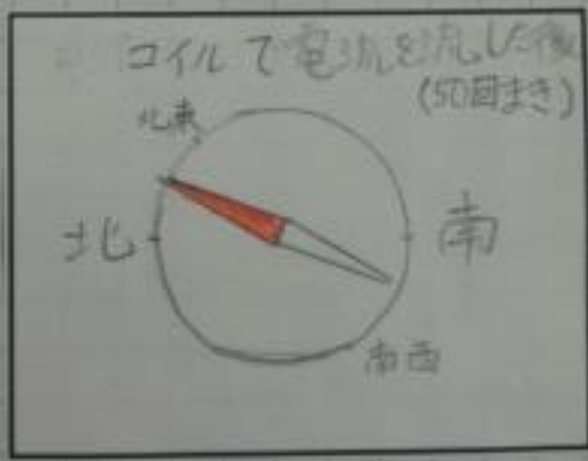 コイルで電流を流した後
(50回まき)
北東
北
南
南西